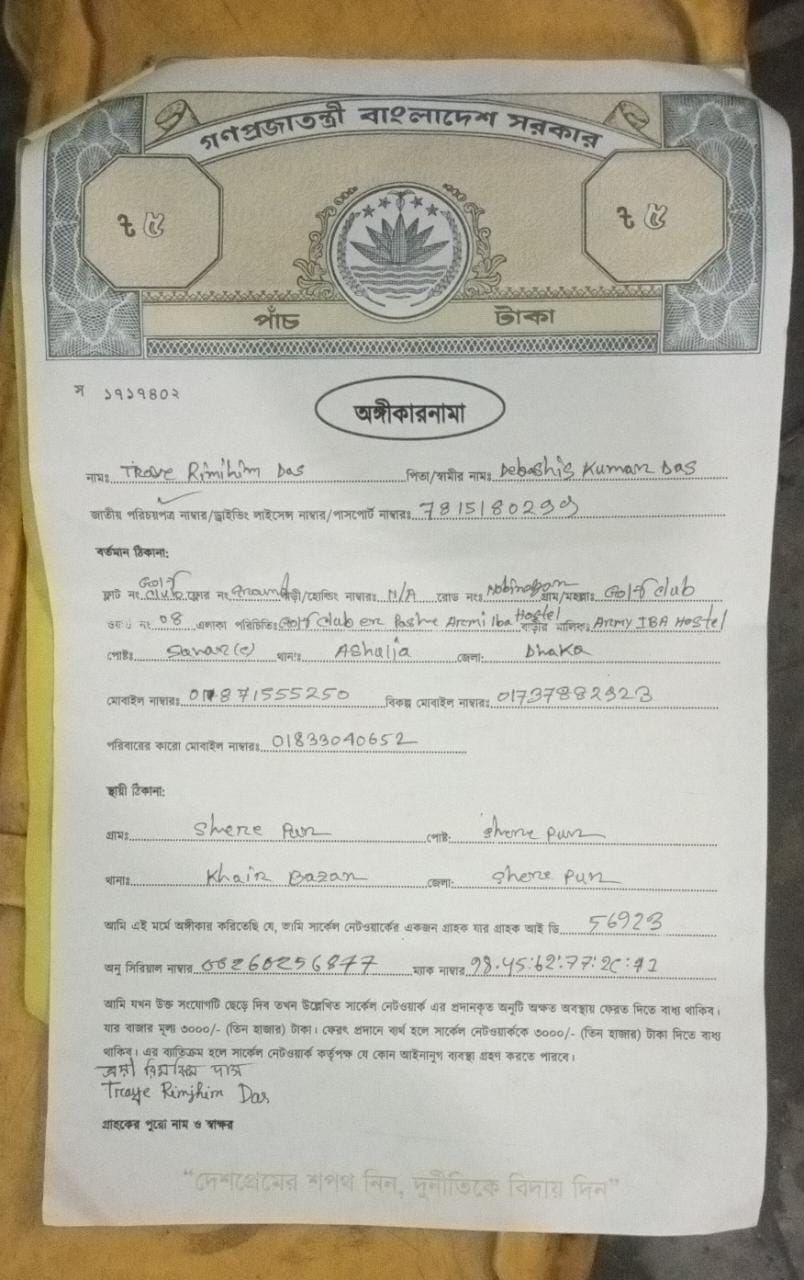 গণপ্রজাতন্ত্রী বাংলাদেশ সরকার
৳ ৫ ৳ ৫
পাঁচ টাকা
স ১৭১৭৪০২
অঙ্গীকারনামা
নামঃ Troye Rimihim Das পিতা/স্বামীর নামঃ Debashis Kumar Das
জাতীয় পরিচয়পত্র নাম্বার/ড্রাইভিং লাইসেন্স নাম্বার/পাসপোর্ট নাম্বারঃ 7815180299
বর্তমান ঠিকানা:
ফ্লাট নং Golf club ফ্লোর নং Ground বাড়ী/হোল্ডিং নাম্বারঃ N/A রোড নংঃ Nobinagar গ্রাম/মহল্লাঃ Golf club
ওয়ার্ড নং 08 এলাকা পরিচিতিঃ Golf Club er Pashe Army Iba Hostel বাড়ীর মালিকঃ Army IBA Hostel
পোষ্টঃ Savar(c) থানাঃ Ashulia জেলা: Dhaka
মোবাইল নাম্বারঃ 01871555250 বিকল্প মোবাইল নাম্বারঃ 01737882323
পরিবারের কারো মোবাইল নাম্বারঃ 01833040652
স্থায়ী ঠিকানা:
গ্রামঃ Shere Pur পোষ্ট: shere pur
থানাঃ Khair Bazar জেলা: shere pur
আমি এই মর্মে অঙ্গীকার করিতেছি যে, আমি সার্কেল নেটওয়ার্কের একজন গ্রাহক যার গ্রাহক আই ডি 56923
অনু সিরিয়াল নাম্বার 00260256877 ম্যাক নাম্বার 98:45:62:77:2C:42
আমি যখন উক্ত সংযোগটি ছেড়ে দিব তখন উল্লেখিত সার্কেল নেটওয়ার্ক এর প্রদানকৃত অনুটি অক্ষত অবস্থায় ফেরত দিতে বাধ্য থাকিব।
যার বাজার মূল্য ৩০০০/- (তিন হাজার) টাকা। ফেরৎ প্রদানে ব্যর্থ হলে সার্কেল নেটওয়ার্ককে ৩০০০/- (তিন হাজার) টাকা দিতে বাধ্য
থাকিব। এর ব্যতিক্রম হলে সার্কেল নেটওয়ার্ক কর্তৃপক্ষ যে কোন আইনানুগ ব্যবস্থা গ্রহণ করতে পারবে।
ত্রয়ী রিমঝিম দাস
Troye Rimjhim Das
গ্রাহকের পুরো নাম ও স্বাক্ষর
“দেশপ্রেমের শপথ নিন, দুর্নীতিকে বিদায় দিন”